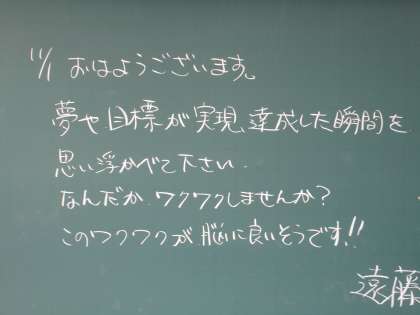 11/1 おはようございます。
夢や目標が実現、達成した瞬間を
思い浮かべて下さい.
なんだか.ワクワクしませんか?
このワクワクが脳に良いそうです!!
遠藤